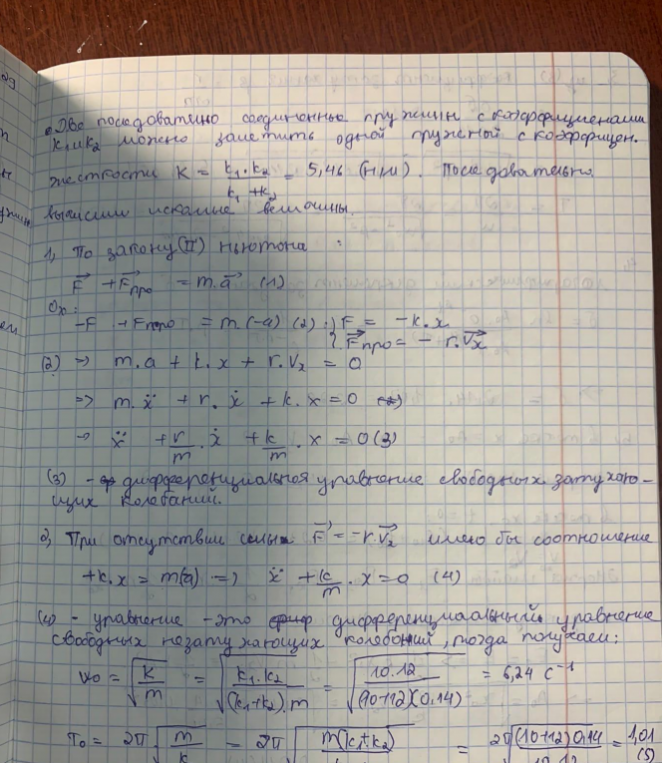 Две последоватено соединенные пружин с коэффиционами
k₁ и k₂ можно заметить одной пруженый с коэффицен.
жесткости K = k₁·k₂ / k₁+k₂ = 5,46 (Н/м). Последовательно.
вычислим искамие величины.
1, По закону (II) ньютона :
F⃗ + F⃗про = m.a⃗ (1)
Ox:
-F + Fпро = m(-a) (2) : { F = -k.x
F⃗про = - r.V⃗x
(2) => m.a + k.x + r.Vx = 0
=> m.ẍ + r.ẋ + k.x = 0
→ ẍ + r/m . ẋ + k/m . x = 0 (3)
(3) - дифференциальноя уравнение свободных затухаю-
щих колебаний.
2, При отсутствии силы F⃗ = -r.V⃗x имело бы соотношение
+k.x = m(a) => ẍ + k/m . x = 0 (4)
(4) - уравнение - это дифференциаальный уравнение
свободных незатухающих колебоний, тогда получаем:
ω₀ = √(k/m) = √(k₁.k₂ / (k₁+k₂).m) = √(10.12 / (10+12)(0.14)) = 6,24 c⁻¹
T₀ = 2π √(m/k) = 2π √(m(k₁+k₂) = 2π √((10+12)0,14 / 10.12) = 1,01
(s)